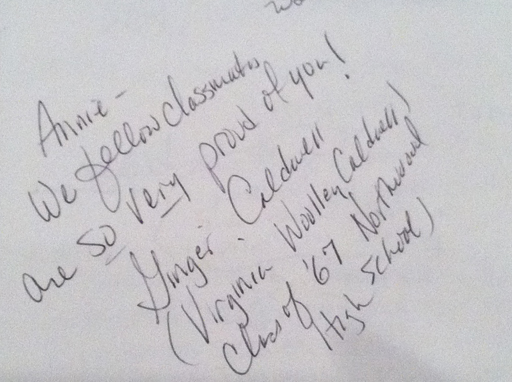 Annie -
We fellow classmates
are so very proud of you!
Ginger Caldwell
(Virginia Woolley Caldwell)
Class of '67 Northwood
High School)